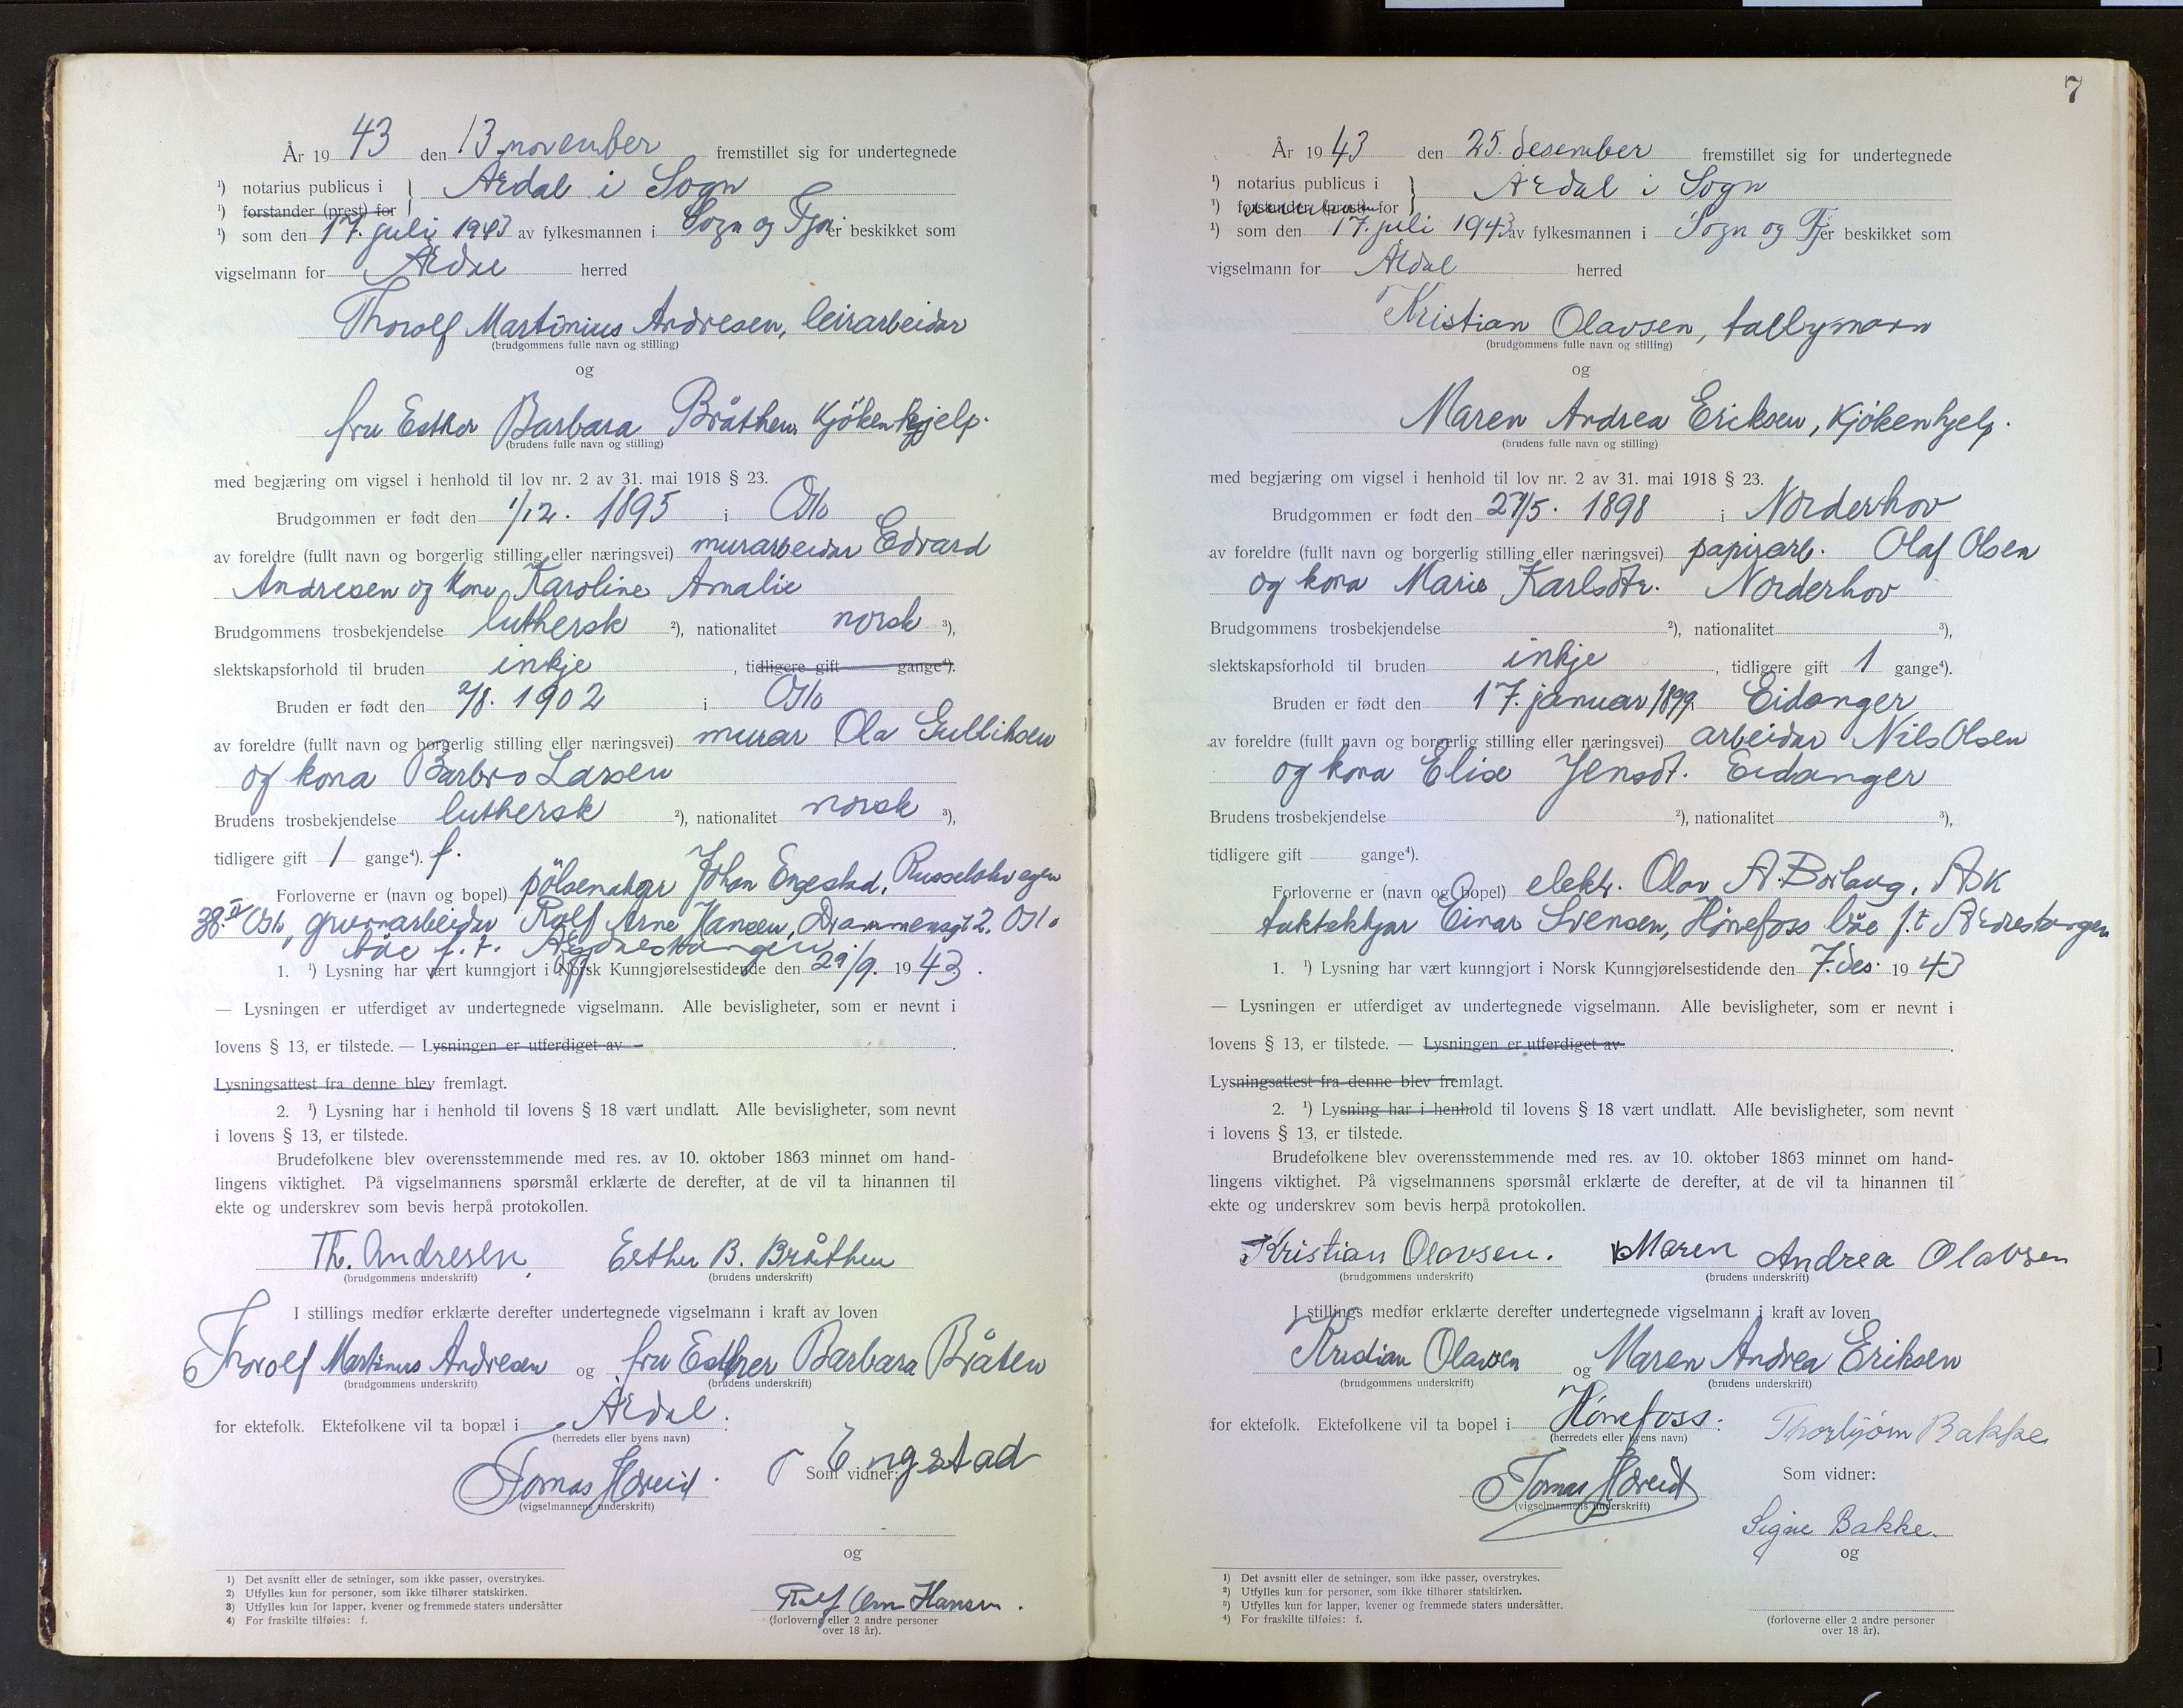 År 19 43 den 13. november fremstillet sig for undertegnede
¹) notarius publicus i } Årdal i Sogn
¹) forstander (prest) for
¹) som den 17. juli 1943 av fylkesmannen i Sogn og Fj. er beskikket som
vigselmann for Årdal herred
Thorolf Martinius Andresen, leirarbeidar
(brudgommens fulle navn og stilling)
og
fru Esther Barbara Bråthen, Kjøkenhjelp.
(brudens fulle navn og stilling)
med begjæring om vigsel i henhold til lov nr. 2 av 31. mai 1918 § 23.
Brudgommen er født den 1/12. 1895 i Oslo
av foreldre (fullt navn og borgerlig stilling eller næringsvei) murarbeidar Edvard
Andresen og kone Karoline Amalie
Brudgommens trosbekjendelse luthersk ²), nationalitet norsk ³),
slektskapsforhold til bruden inkje , tidligere gift gange⁴).
Bruden er født den 2/8. 1902 i Oslo
av foreldre (fullt navn og borgerlig stilling eller næringsvei) murar Ola Gulliksen
og kona Barbro Larsen
Brudens trosbekjendelse luthersk ²), nationalitet norsk ³),
tidligere gift 1 gange⁴). f.
Forloverne er (navn og bopel) pölsemakar Johan Engestad,
38 II Oslo, gruvearbeidar Rolf Arne Hansen, Drammensgt 2. Oslo
båe f. t. Årdalstangen
1. ¹) Lysning har vært kunngjort i Norsk Kunngjørelsestidende den 29/9. 19 43.
— Lysningen er utferdiget av undertegnede vigselmann. Alle bevisligheter, som er nevnt i
lovens § 13, er tilstede. — Lysningen er utferdiget av .
Lysningsattest fra denne blev fremlagt.
2. ¹) Lysning har i henhold til lovens § 18 vært undlatt. Alle bevisligheter, som nevnt
i lovens § 13, er tilstede.
Brudefolkene blev overensstemmende med res. av 10. oktober 1863 minnet om hand-
lingens viktighet. På vigselmannens spørsmål erklærte de derefter, at de vil ta hinannen til
ekte og underskrev som bevis herpå protokollen.
Th. Andresen. Esther B. Bråthen
(brudgommens underskrift) (brudens underskrift)
I stillings medfør erklærte derefter undertegnede vigselmann i kraft av loven
Thorolf Martinius Andresen og fru Esther Barbara Bråten
(brudgommens underskrift) (brudens underskrift)
for ektefolk. Ektefolkene vil ta bopæl i Årdal.
(herredets eller byens navn)
J Engstad
Som vidner:
Tomas Hæreid.
(vigselmannens underskrift)
og
1) Det avsnitt eller de setninger, som ikke passer, overstrykes.
2) Utfylles kun for personer, som ikke tilhører statskirken.
3) Utfylles kun for lapper, kvener og fremmede staters undersåtter
4) For fraskilte tilføies: f.
Rolf Arne Hansen.
(forloverne eller 2 andre personer
over 18 år).
7
År 19 43 den 25. desember fremstillet sig for undertegnede
¹) notarius publicus i } Årdal i Sogn
¹) forstander (prest) for
¹) som den 17. juli 1943 av fylkesmannen i Sogn og Fj. er beskikket som
vigselmann for Årdal herred
Kristian Olavsen, tallymann
(brudgommens fulle navn og stilling)
og
Maren Andrea Eriksen, Kjökenhjelp.
(brudens fulle navn og stilling)
med begjæring om vigsel i henhold til lov nr. 2 av 31. mai 1918 § 23.
Brudgommen er født den 27/5. 1898 i Norderhov
av foreldre (fullt navn og borgerlig stilling eller næringsvei) papirarb. Olaf Olsen
og kona Marie Karlsdtr. Norderhov
Brudgommens trosbekjendelse ²), nationalitet ³),
slektskapsforhold til bruden inkje , tidligere gift 1 gange⁴).
Bruden er født den 17. januar 1899 Eidanger
av foreldre (fullt navn og borgerlig stilling eller næringsvei) arbeidar Nils Olsen
og kona Elise Jensdt. Eidanger
Brudens trosbekjendelse ²), nationalitet ³),
tidligere gift gange⁴).
Forloverne er (navn og bopel) elektr. Olav A. Borlaug, Ask
taktekkjar Einar Svensen, Hönefoss båe f.t Årdalstangen
1. ¹) Lysning har vært kunngjort i Norsk Kunngjørelsestidende den 7. des. 19 43
— Lysningen er utferdiget av undertegnede vigselmann. Alle bevisligheter, som er nevnt i
lovens § 13, er tilstede. — Lysningen er utferdiget av .
Lysningsattest fra denne blev fremlagt.
2. ¹) Lysning har i henhold til lovens § 18 vært undlatt. Alle bevisligheter, som nevnt
i lovens § 13, er tilstede.
Brudefolkene blev overensstemmende med res. av 10. oktober 1863 minnet om hand-
lingens viktighet. På vigselmannens spørsmål erklærte de derefter, at de vil ta hinannen til
ekte og underskrev som bevis herpå protokollen.
Kristian Olavsen. Maren Andrea Olavsen
(brudgommens underskrift) (brudens underskrift)
I stillings medfør erklærte derefter undertegnede vigselmann i kraft av loven
Kristian Olavsen og Maren Andrea Eriksen
(brudgommens underskrift) (brudens underskrift)
for ektefolk. Ektefolkene vil ta bopel i Hönefoss.
(herredets eller byens navn)
Thorbjørn Bakke
Som vidner:
Tomas Hæreid
(vigselmannens underskrift)
Signe Bakke.
og
1) Det avsnitt eller de setninger, som ikke passer, overstrykes.
2) Utfylles kun for personer, som ikke tilhører statskirken.
3) Utfylles kun for lapper, kvener og fremmede staters undersåtter.
4) For fraskilte tilføies: f.
(forloverne eller 2 andre personer
over 18 år).